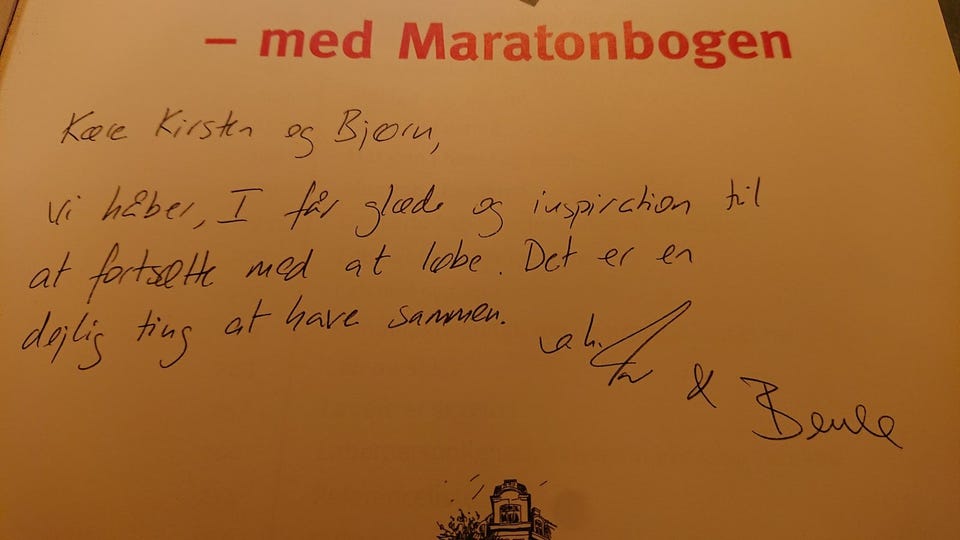 – med Maratonbogen
Kære Kirsten og Bjørn,
Vi håber, I får glæde og inspiration til
at fortsætte med at løbe. Det er en
dejlig ting at have sammen.
& Bente